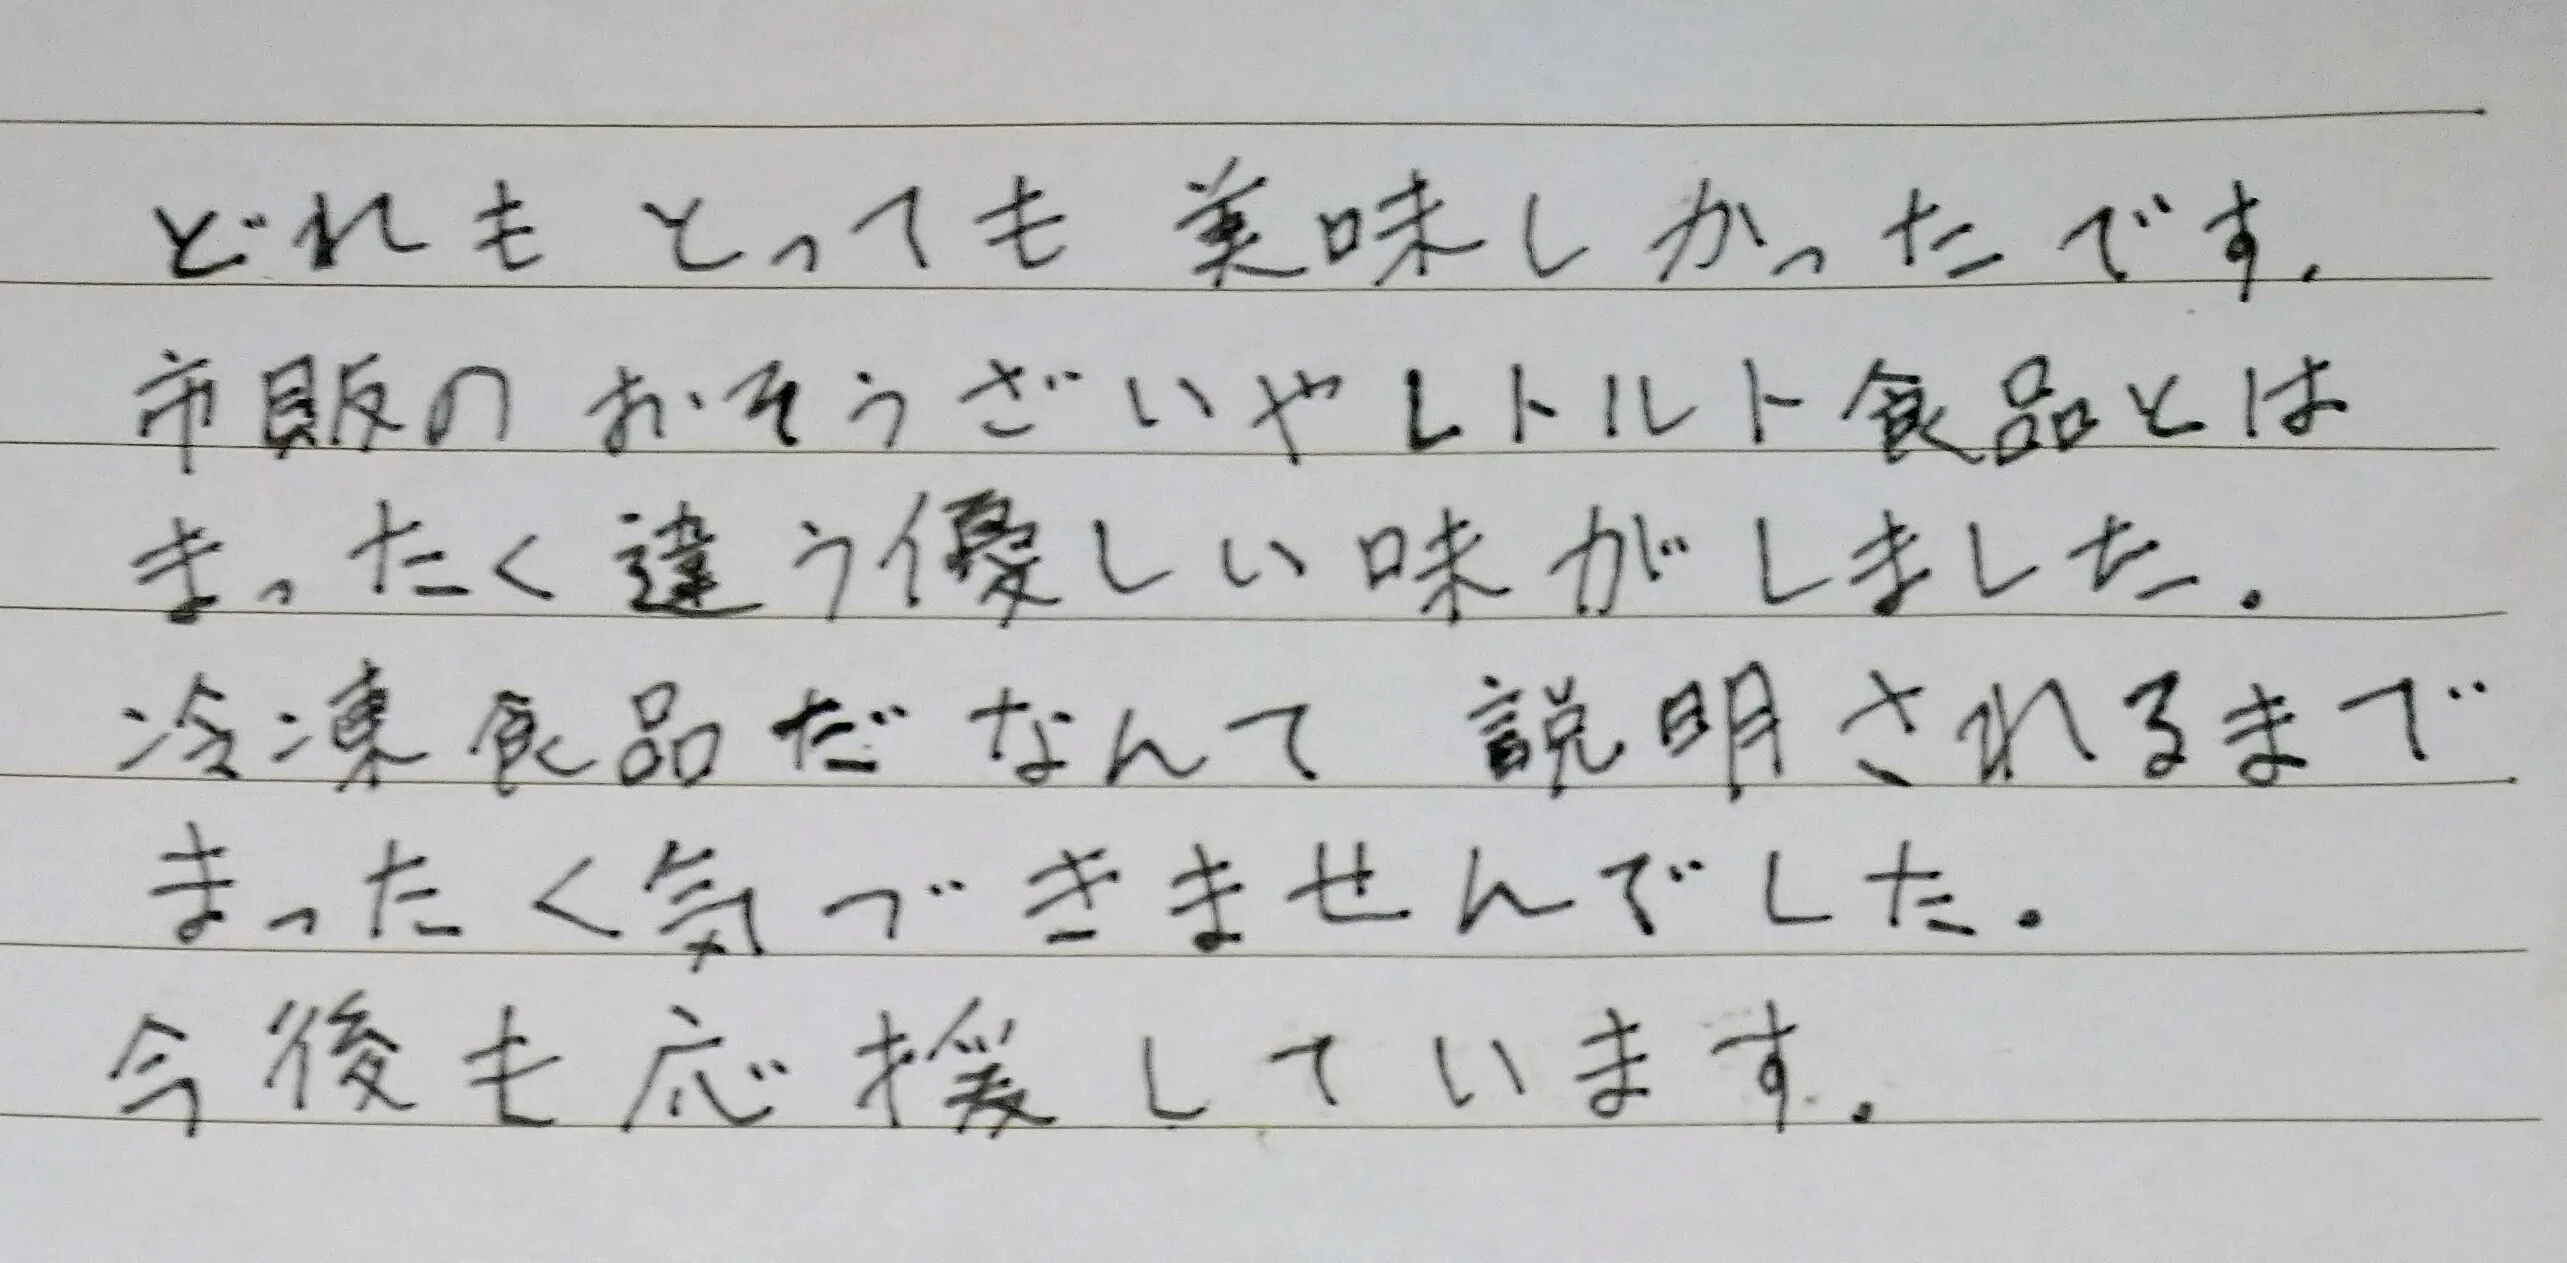 どれもとっても美味しかったです.
市販のおそうざいやレトルト食品とは
まったく違う優しい味がしました.
冷凍食品だなんて説明されるまで
まったく気づきませんでした.
今後も応援しています.